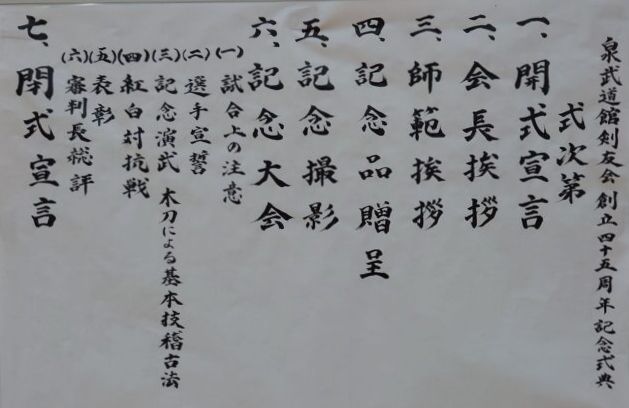 泉武道館剣友会創立四十五周年記念式典
式次第
一、開式宣言
二、会長挨拶
三、師範挨拶
四、記念品贈呈
五、記念撮影
六、記念大会
(一)試合上の注意
(二)選手宣誓
(三)記念演武 木刀による基本技稽古法
(四)紅白対抗戦
(五)表彰
(六)審判長総評
七、閉式宣言